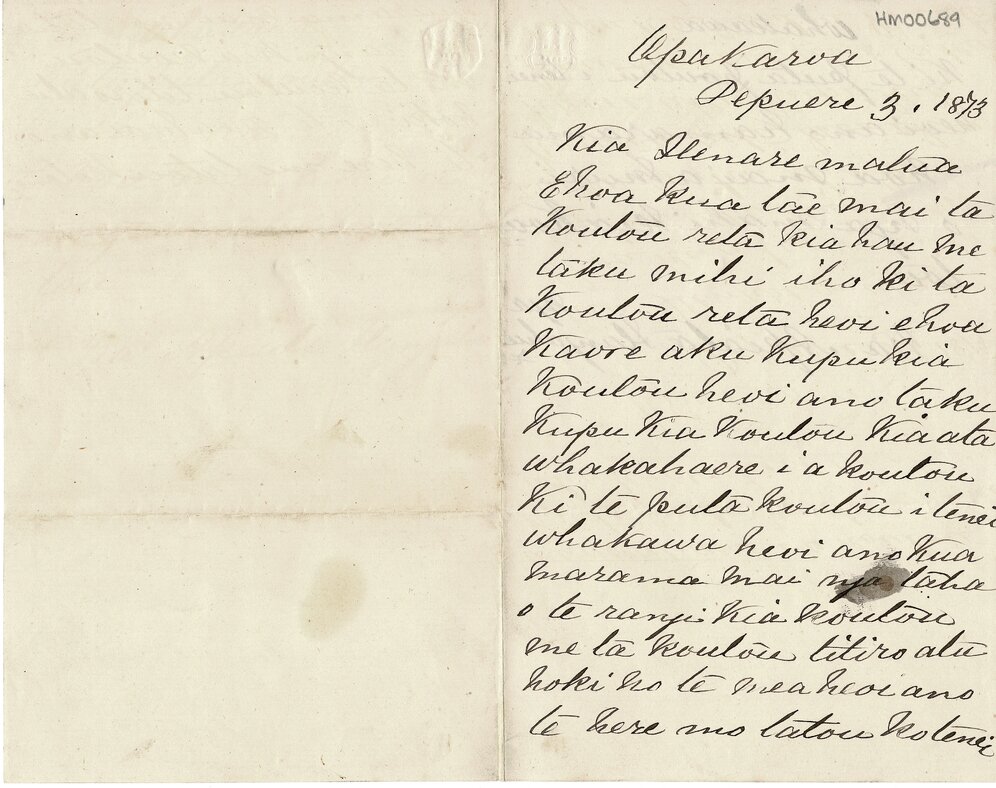 HM00689
Opakaroa
Pepuere 3. 1873
Kia Henare matua
Ehoa kua tae mai ta
Koutou reta kia hau me
taku mihi iho ki ta
Koutou reta heoi ehoa
Kaore aku Kupu kia
Koutou heoi ano taku
Kupu Kia Koutou Kia ata
whakahaere i a koutou
Ki te puta koutou i tenei
whakawa heoi ano Kua
marama mai nga taha
o te rangi Kia koutou
me ta koutou titiro atu
hoki no te mea heoi ano
te here mo tatou ko tenei